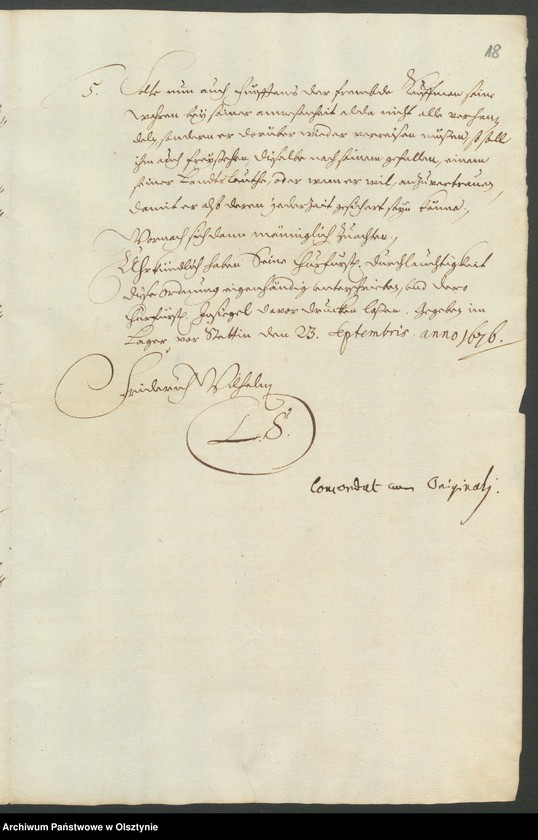 18
5. Solte nun auch Fünfftens der frembde Kauffman seine
Wahren bey seiner anwesenheit alda nicht alle verhan,
deln, sondern er darüber wieder verreisen müsten, so soll
ihm auch freystehen, dieselbe nach seinem gefallen, einem
seiner Landtsleuthe, oder wem er wil, anzuvertrauen,
damit er also deren jederzeit gesichert seyn könne,
Wornach sich dann männiglich zu achten,
Uhrkundlich haben Seine Churfürstl. Durchleuchtigkeit
diese ordnung eigenhändig unterschrieben, und dero
Churfürstl. Insiegel davor drucken laßen. Gegeben im
Lager vor Stettin den 23. Septembris. anno 1676.
Friderich Wilhelm
L. S.
Concordat cum Originali.
Archiwum Państwowe w Olsztynie